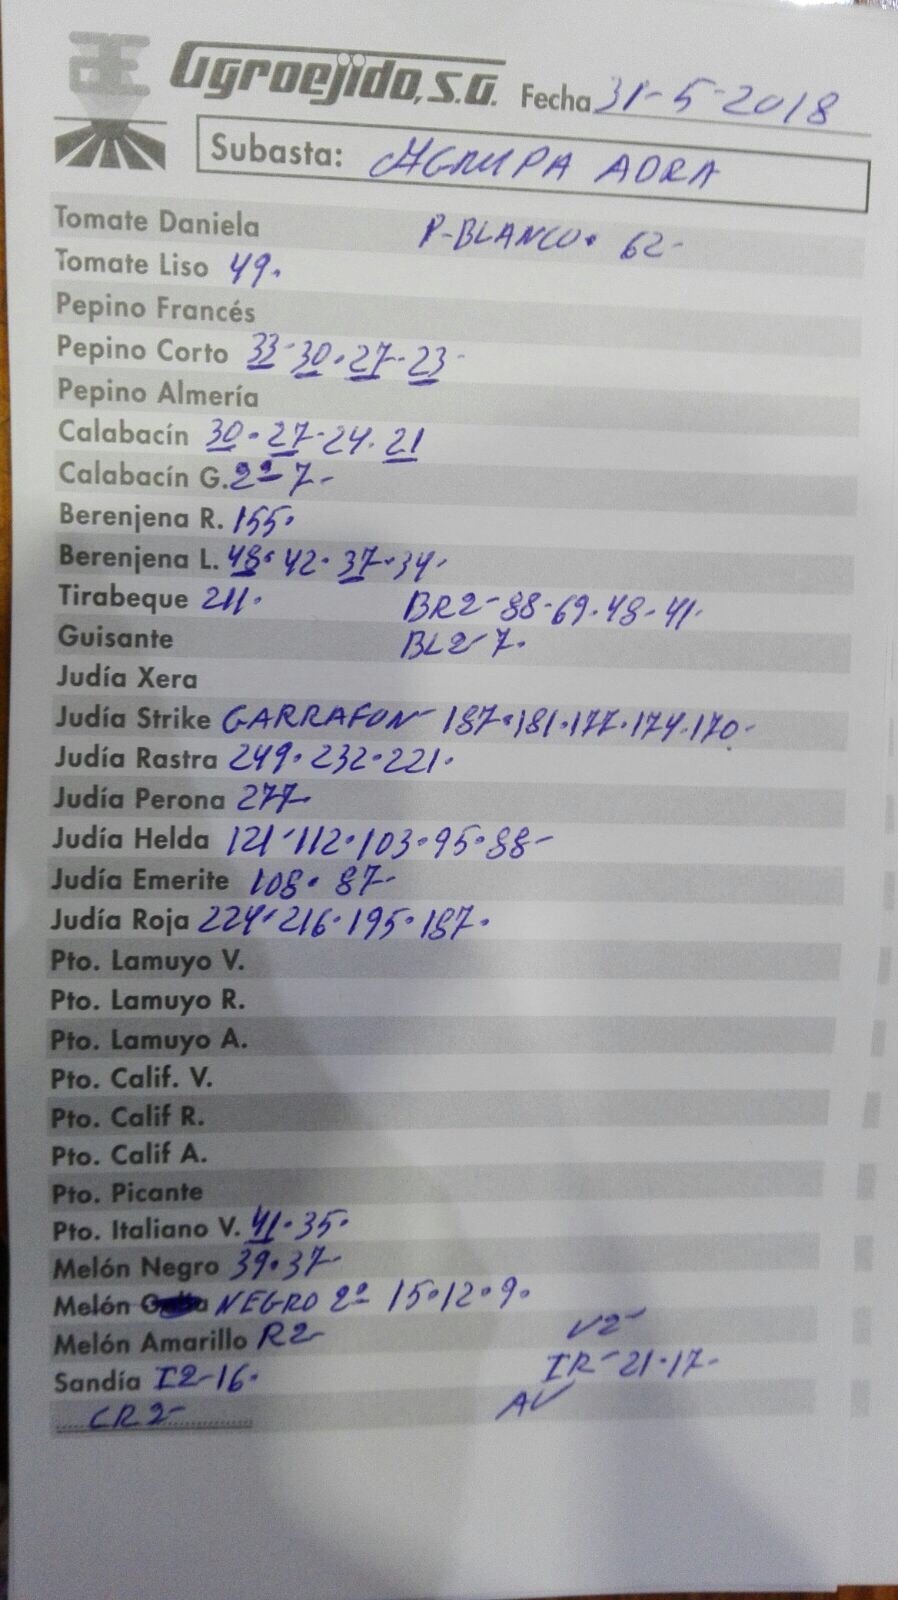 Agroejido, S.A. Fecha 31-5-2018
Subasta: AGRUPA ADRA
Tomate Daniela P-BLANCO. 62-
Tomate Liso 49.
Pepino Francés
Pepino Corto 33-30.27-23-
Pepino Almería
Calabacín 30.27-24.21
Calabacín G. 2ª 7-
Berenjena R. 155.
Berenjena L. 48.42.37.34-
Tirabeque 211. BR2-88-69.48-41.
Guisante BL2 7.
Judía Xera
Judía Strike GARRAFON 187.181.177.174.170-
Judía Rastra 249.232.221.
Judía Perona 277-
Judía Helda 121-112.103.95.88-
Judía Emerite 108. 87-
Judía Roja 224-216.195.187.
Pto. Lamuyo V.
Pto. Lamuyo R.
Pto. Lamuyo A.
Pto. Calif. V.
Pto. Calif R.
Pto. Calif A.
Pto. Picante
Pto. Italiano V. 41.35.
Melón Negro 39.37-
Melón NEGRO 2ª 15.12.9.
Melón Amarillo R2- V2-
Sandía I2-16. IR-21.17-
CR2- AV